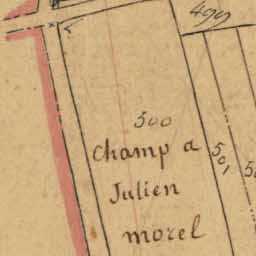 499
500
champ a
Julien
morel
501